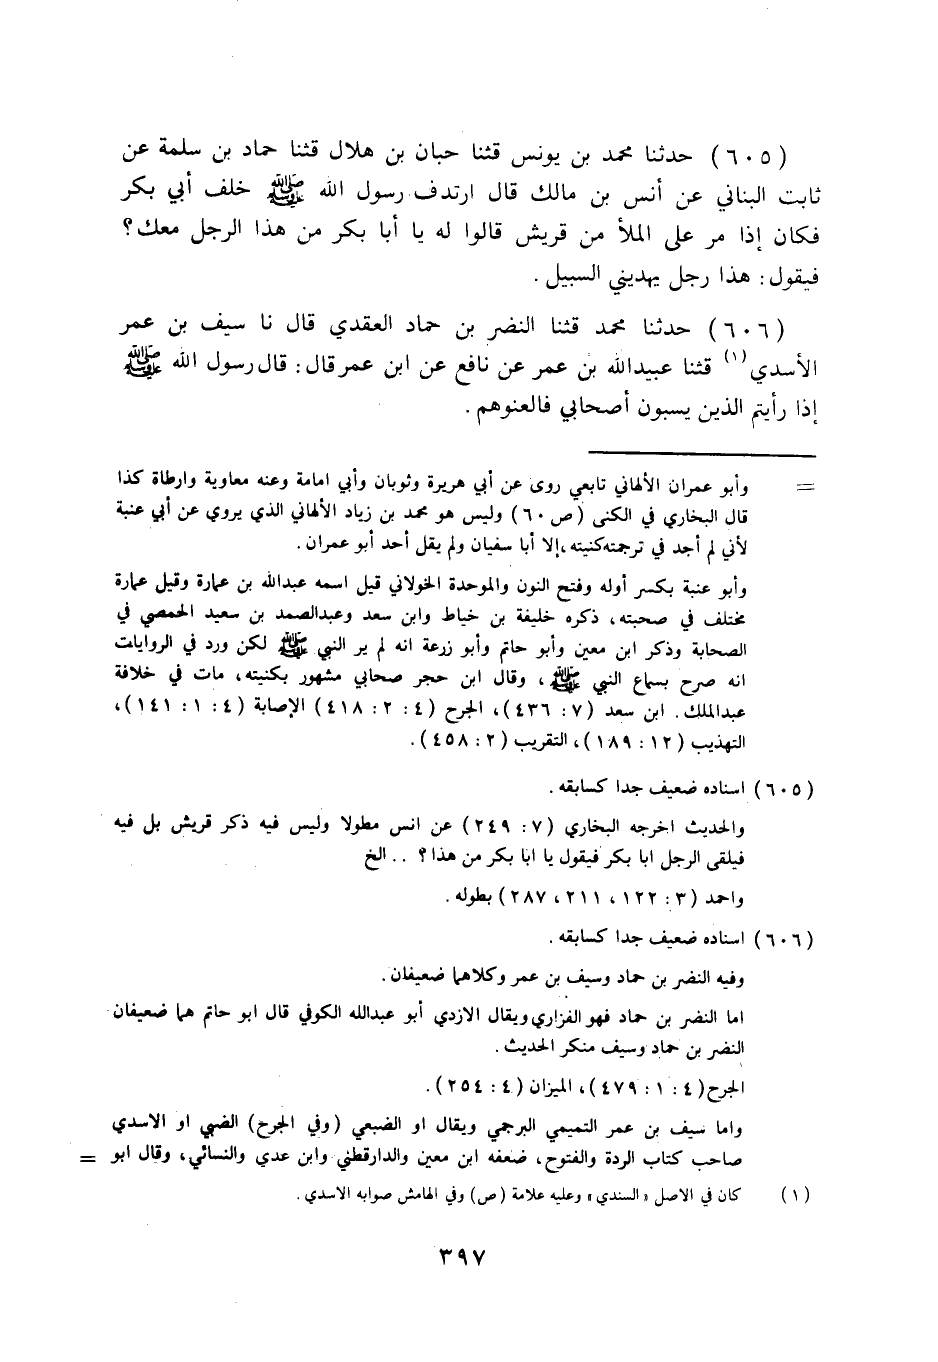 (٦٠٥) حدثنا محمد بن يونس قثنا حبان بن هلال قثنا حماد بن سلمة عن
ثابت البناني عن أنس بن مالك قال ارتدف رسول الله ﷺ خلف أبي بكر
فكان إذا مر على الملأ من قريش قالوا له يا أبا بكر من هذا الرجل معك؟
فيقول: هذا رجل يهديني السبيل.
(٦٠٦) حدثنا محمد قثنا النضر بن حماد العقدي قال نا سيف بن عمر
الأسدي(١) قثنا عبيدالله بن عمر عن نافع عن ابن عمر قال: قال رسول الله ﷺ
إذا رأيتم الذين يسبون أصحابي فالعنوهم.
= وأبو عمران الألهاني تابعي روى عن أبي هريرة وثوبان وأبي امامة وعنه معاوية وارطاة كذا
قال البخاري في الكنى (ص ٦٠) وليس هو محمد بن زياد الألهاني الذي يروي عن أبي عنبة
لأني لم أجد في ترجمته كنيته، إلا أبا سفيان ولم يقل أحد أبو عمران.
وأبو عنبة بكسر أوله وفتح النون والموحدة الخولاني قيل اسمه عبدالله بن عمارة وقيل عمارة
مختلف في صحبته، ذكره خليفة بن خياط وابن سعد وعبدالصمد بن سعيد الحمصي في
الصحابة وذكر ابن معين وأبو حاتم وأبو زرعة انه لم ير النبي ﷺ لكن ورد في الروايات
انه صرح بسماع النبي ﷺ، وقال ابن حجر صحابي مشهور بكنيته، مات في خلافة
عبدالملك. ابن سعد (٧: ٤٣٦)، الجرح (٤: ٢: ٤١٨) الإصابة (٤: ١: ١٤١)،
التهذيب (١٢: ١٨٩)، التقريب (٢: ٤٥٨).
(٦٠٥) اسناده ضعيف جدا كسابقه.
والحديث اخرجه البخاري (٧: ٢٤٩) عن انس مطولا وليس فيه ذكر قريش بل فيه
فيلقى الرجل ابا بكر فيقول يا ابا بكر من هذا؟ .. الخ
واحمد (٣: ١٢٢، ٢١١، ٢٨٧) بطوله.
(٦٠٦) اسناده ضعيف جدا كسابقه.
وفيه النضر بن حماد وسيف بن عمر وكلاهما ضعيفان.
اما النضر بن حماد فهو الفزاري ويقال الازدي أبو عبدالله الكوفي قال ابو حاتم هما ضعيفان
النضر بن حماد وسيف منكر الحديث.
الجرح (٤: ١: ٤٧٩)، الميزان (٤: ٢٥٤).
واما سيف بن عمر التميمي البرجمي ويقال او الضبعي (وفي الجرح) الضبي او الاسدي
صاحب كتاب الردة والفتوح، ضعفه ابن معين والدارقطني وابن عدي والنسائي، وقال ابو =
(١) كان في الاصل «السندي» وعليه علامة (ص) وفي الهامش صوابه الاسدي.
٣٩٧